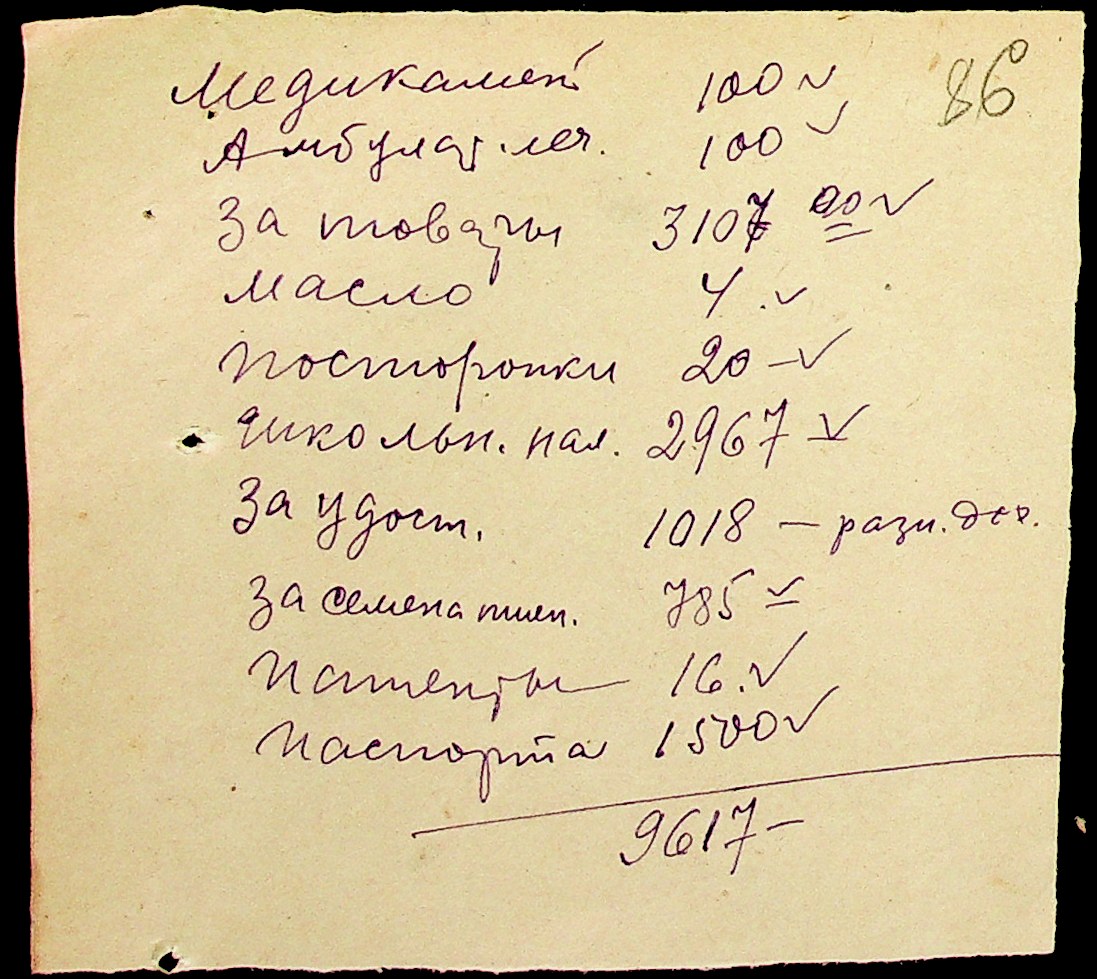 86
Медикамент 100
Амбулат. леч. 100
За товары 3107 00
Масло 4.
Посторонки 20 –
Школьн. нал. 2967 –
За удост. 1018 – разн.
За семена пшен. 785 –
Патенты 16.
Паспорта 1500
9617 –